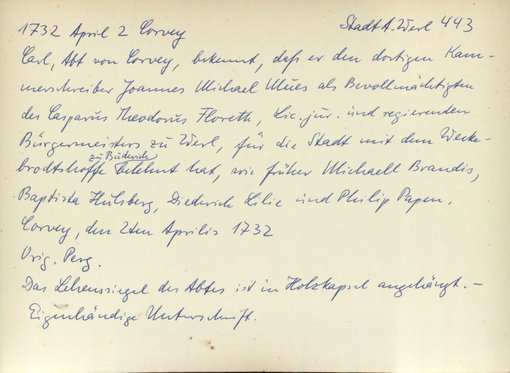 1732 April 2 Corvey Stadt A. Werl 443
Carl, Abt von Corvey, bekennt, daß er den dortigen Kam-
merschreiber Joannes Michael Mues als Bevollmächtigten
des Casparus Theodorus Floreth, Lic. jur. und regierenden
Bürgermeisters zu Werl, für die Stadt mit dem Wecke-
zu Büderich
brodtshoffe belehnt hat, wie früher Michaell Brandis,
Baptista Hulsberg, Diederich Lilie und Philip Papen.
Corvey, den 2ten Aprilis 1732
Orig. Perg.
Das Lehenssiegel des Abtes ist in Holzkapsel angehängt. -
Eigenhändige Unterschrift.